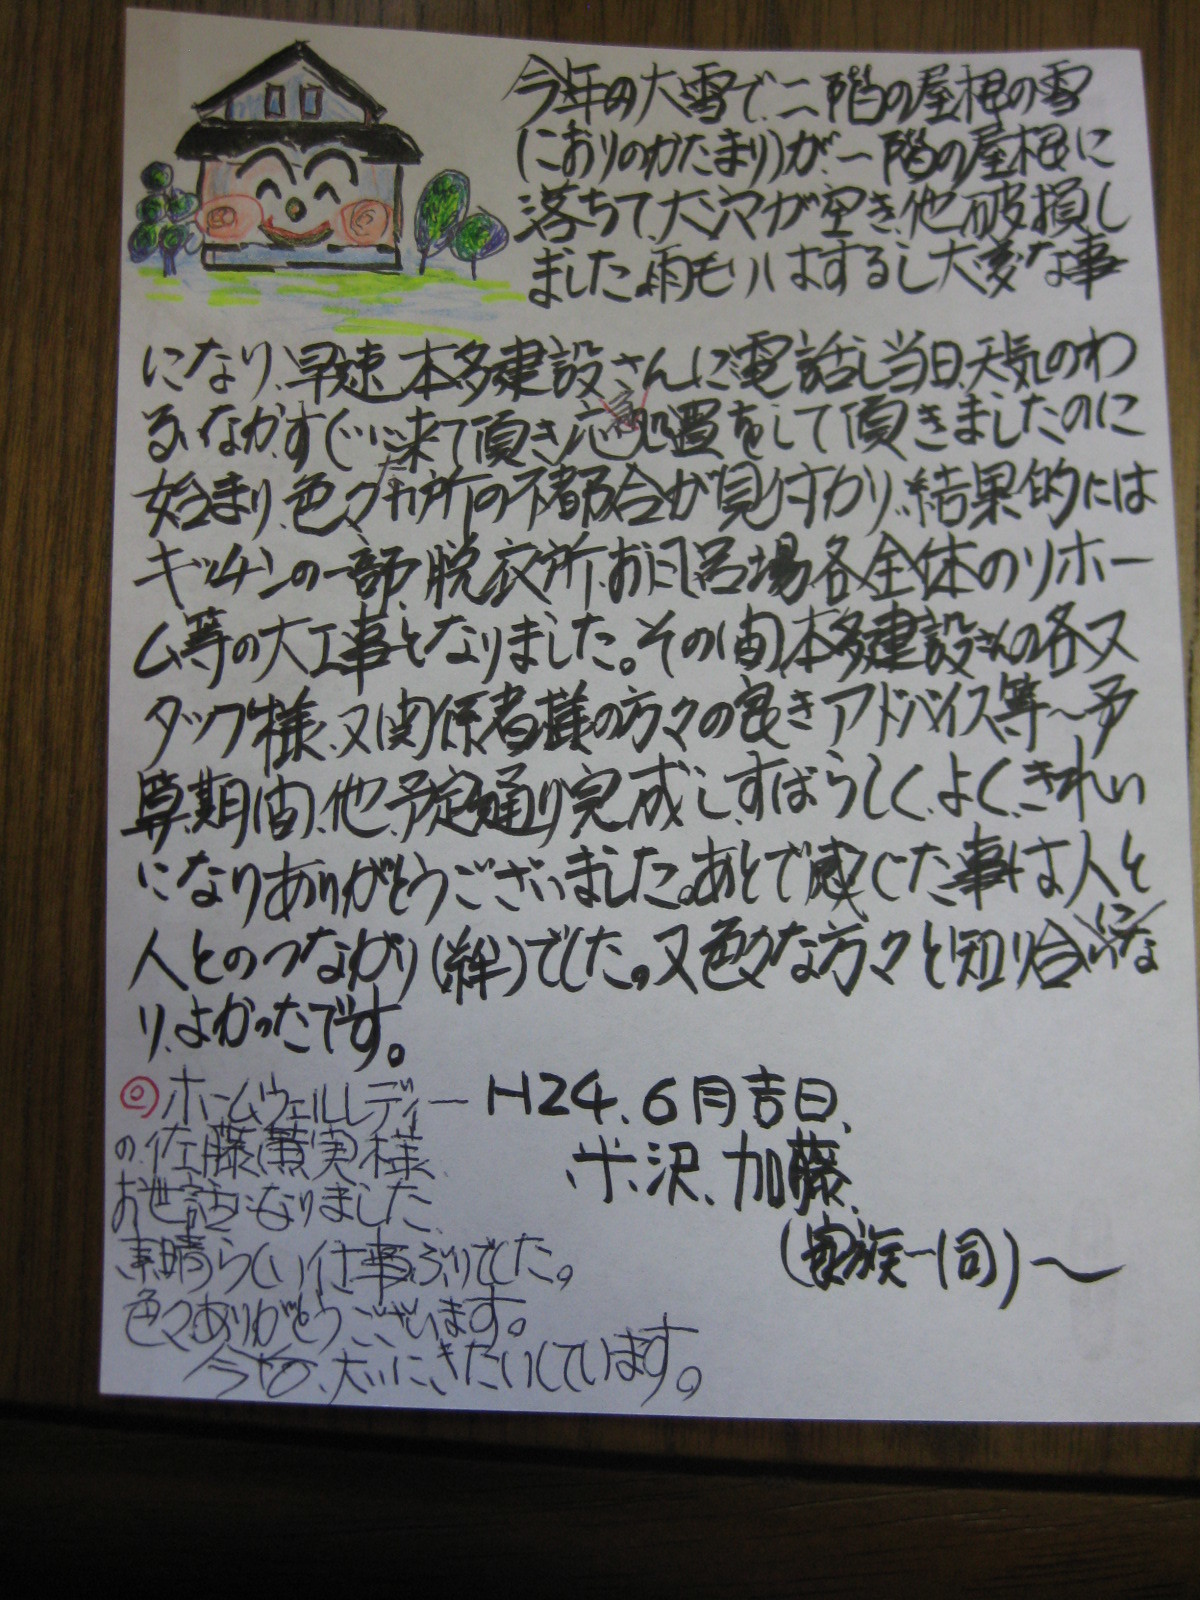 今年の大雪で、二階の屋根の雪
(こおりのかたまり)が、一階の屋根に
落ちて、大穴が空き、他破損し
ました。雨モリはするし大変な事
になり、早速、本多建設さんに電話し当日、天気のわ
るいなか、すぐに来て頂き応急処置をして頂きましたのに
始まり、色々な所の不都合が見付かり、結果的には
キッチンの一部、脱衣所、お風呂場各全体のリホー
ム等の大工事となりました。その間本多建設さんの各ス
タッフ様、又関係者様の方々の良きアドバイス等〜予
算、期間、他、予定通り完成し、すばらしく、よく、きれい
になりありがとうございました。あとで感じた事は人と
人とのつながり(絆)でした。又色々な方々と知り合いにな
り、よかったです。
◎ホームウェルレディー
の、佐藤 実様、
お世話になりました、
素晴らしい仕事ぶりでした。
色々ありがとうございます。
今后、大いにきたいしています。
H24、6月吉日、
米沢、加藤、
(家族一同)〜